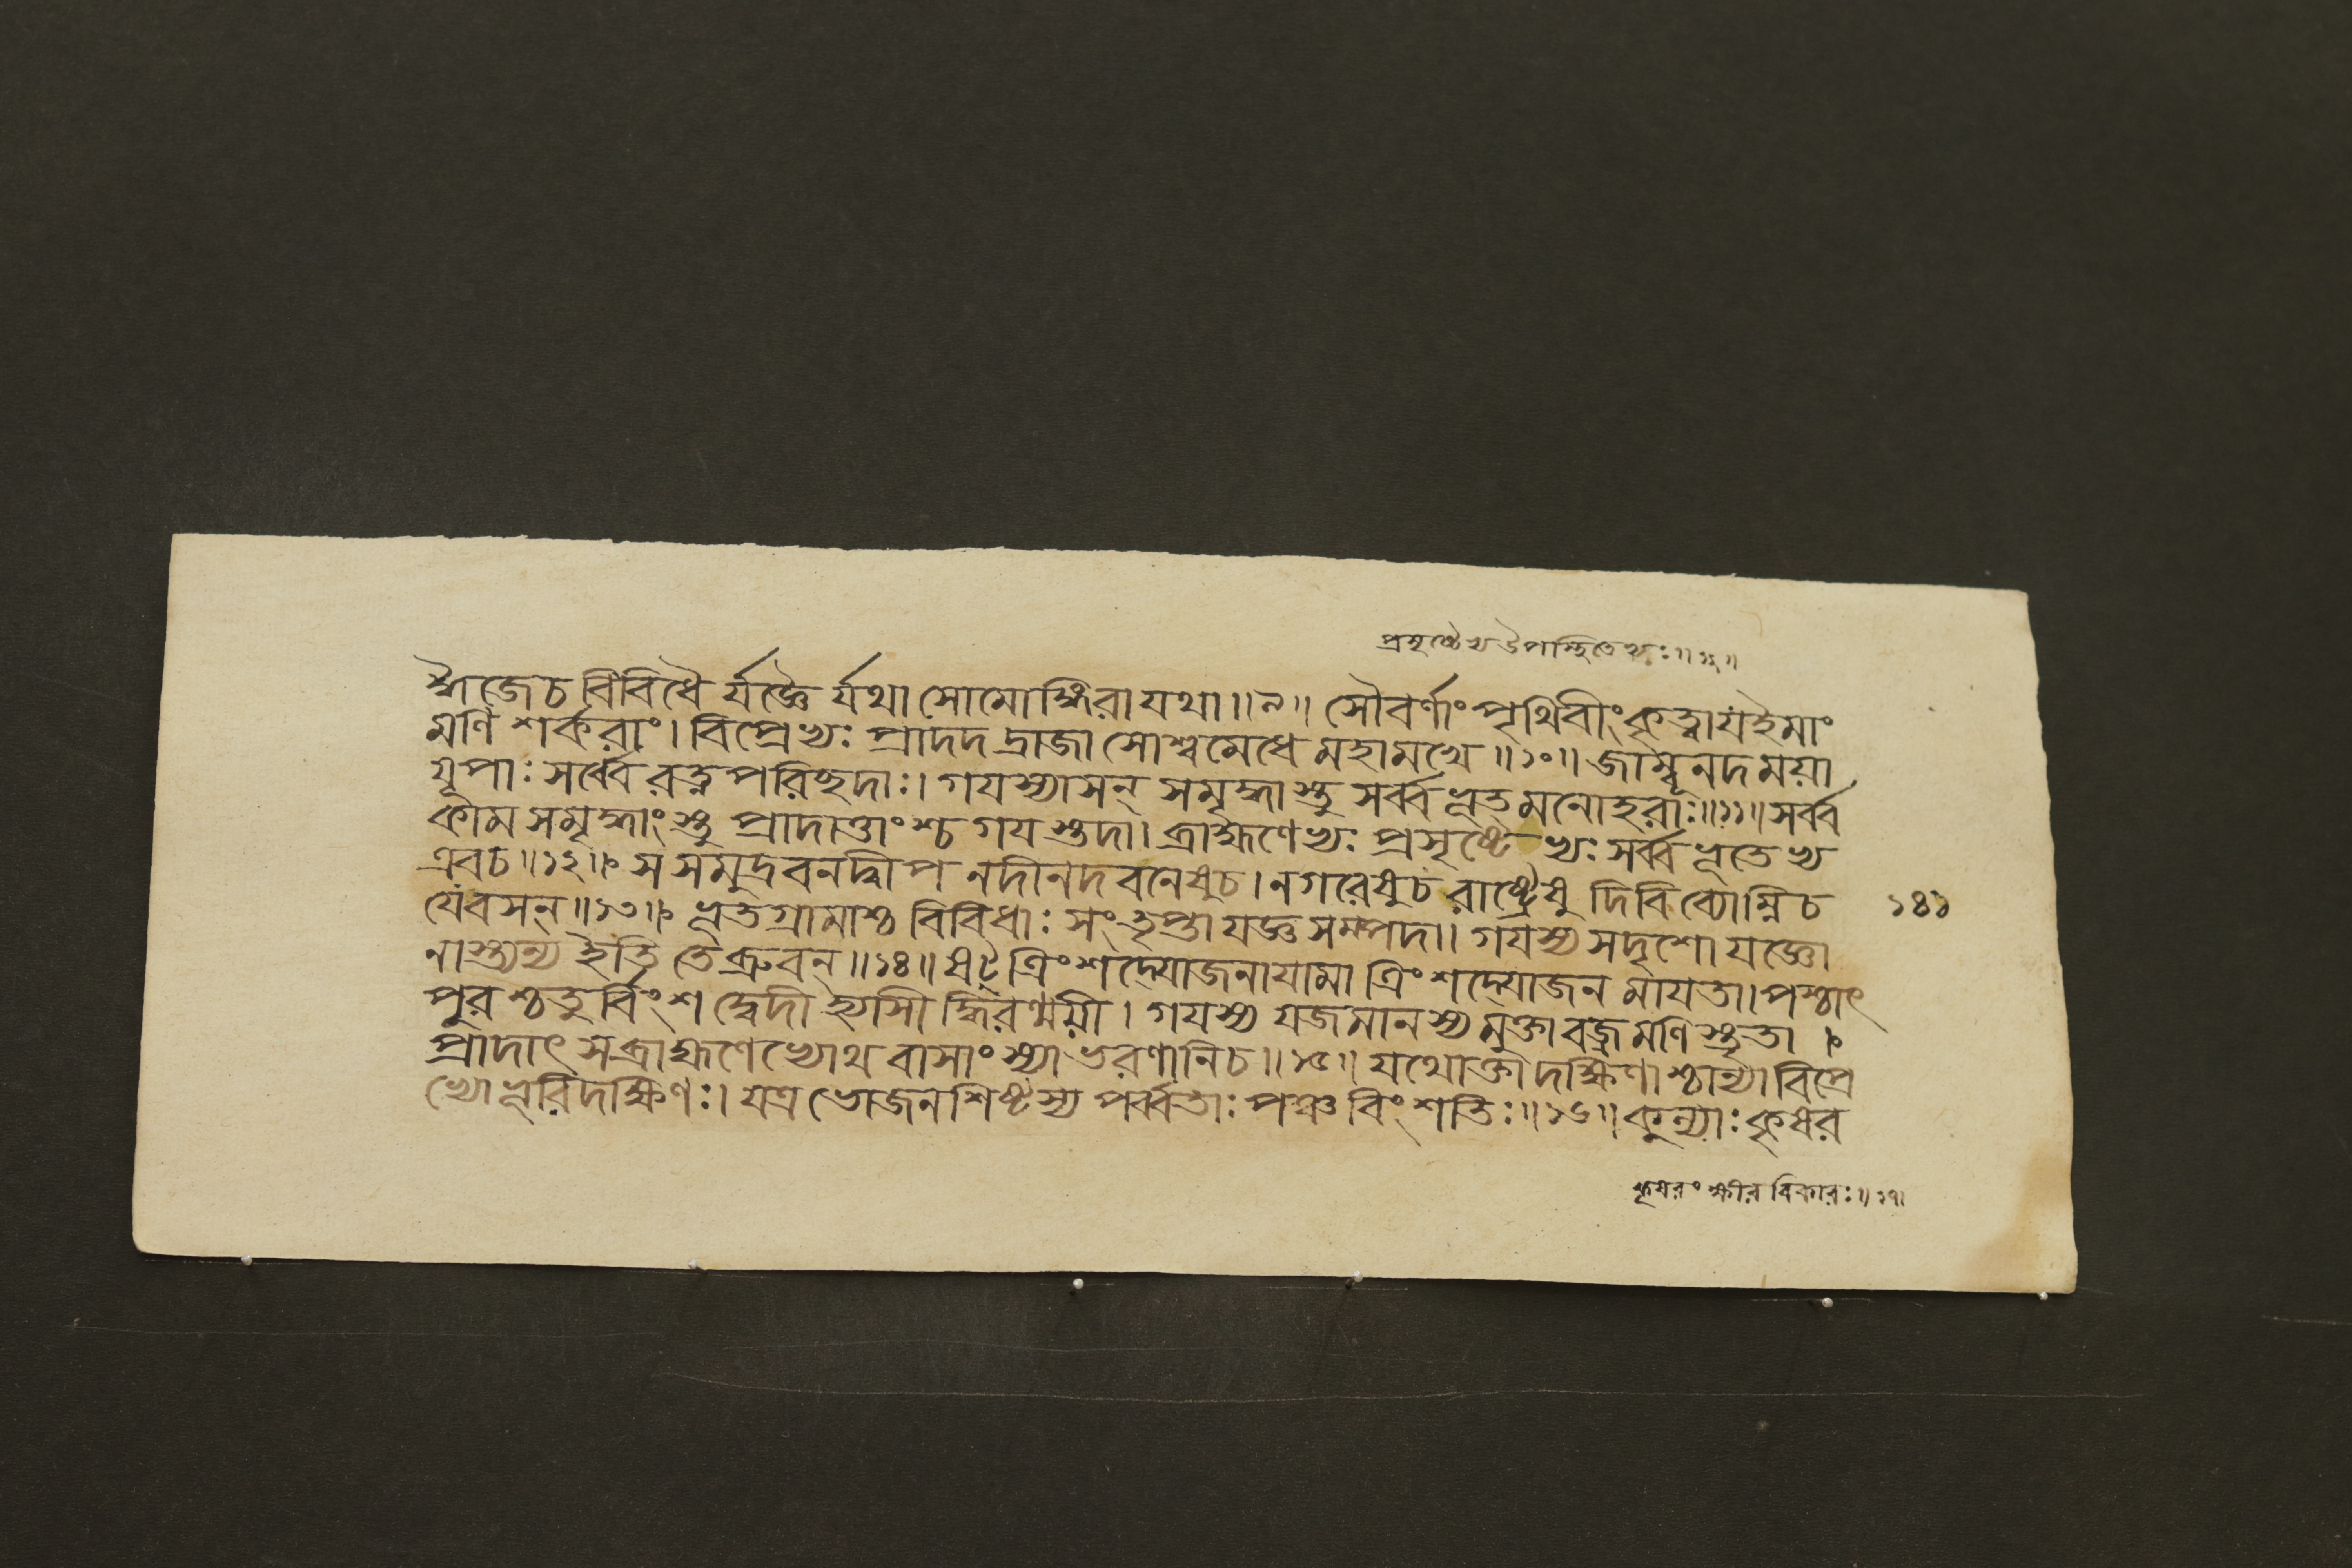 প্রসৃষ্টেভ্য উপস্থিতেভ্যঃ॥১২॥
জৈজেচ বিবিধৈ র্যজ্ঞৈ র্যথা সোমোঙ্গিরা যথা॥৯॥ সৌবর্ণাং পৃথিবীং কৃত্বা য ইমাং
মণি শর্করাং। বিপ্রেভ্যঃ প্রাদদ দ্রাজা সোশ্বমেধে মহামখে॥১০॥ জাম্বূনদ ময়া
যূপাঃ সর্ব্বে রত্ন পরিচ্ছদাঃ। গযস্যাসন্ সমৃদ্ধাস্তু সর্ব্ব ভূত মনোহরাঃ॥১১॥ সর্ব্ব
কাম সমৃদ্ধাংস্তু প্রাদাত্তাংশ্চ গয স্তদা। ব্রাহ্মণেভ্যঃ প্রসৃষ্টে ভ্যঃ সর্ব্ব ভূতেভ্য
এবচ॥১২॥ স সমুদ্র বনদ্বীপ নদীনদ বনেষুচ। নগরেষুচ রাষ্ট্রেষু দিবি ব্যোম্নিচ
যেবসন্॥১৩॥ ভূতগ্রামাশ্চ বিবিধাঃ সংতৃপ্তা যজ্ঞ সম্পদা। গযস্য সদৃশো যজ্ঞো
১৪১
নাস্ত্যন্য ইতি তেব্রুবন্॥১৪॥ ষট্ ত্রিংশদ্যোজনাযামা ত্রিংশদ্যোজন মাযতা। পশ্চাৎ
পুর শ্চতুর্বিংশ দ্বেদী হ্যাসী দ্ধিরণ্ময়ী। গযস্য যজমানস্য মুক্তা বজ্র মণি স্তৃতা।
প্রাদাৎ সব্রাহ্মণেভ্যোথ বাসাংস্যাভরণানিচ॥১৫॥ যথোক্তা দক্ষিণাশ্চান্যা বিপ্রে
ভ্যো ভূরিদক্ষিণঃ। যত্র ভোজন শিষ্টস্য পর্ব্বতাঃ পঞ্চবিংশতিঃ॥১৬॥ কুল্যাঃ কৃষর
কৃষরং ক্ষীর বিকারঃ॥১৭।